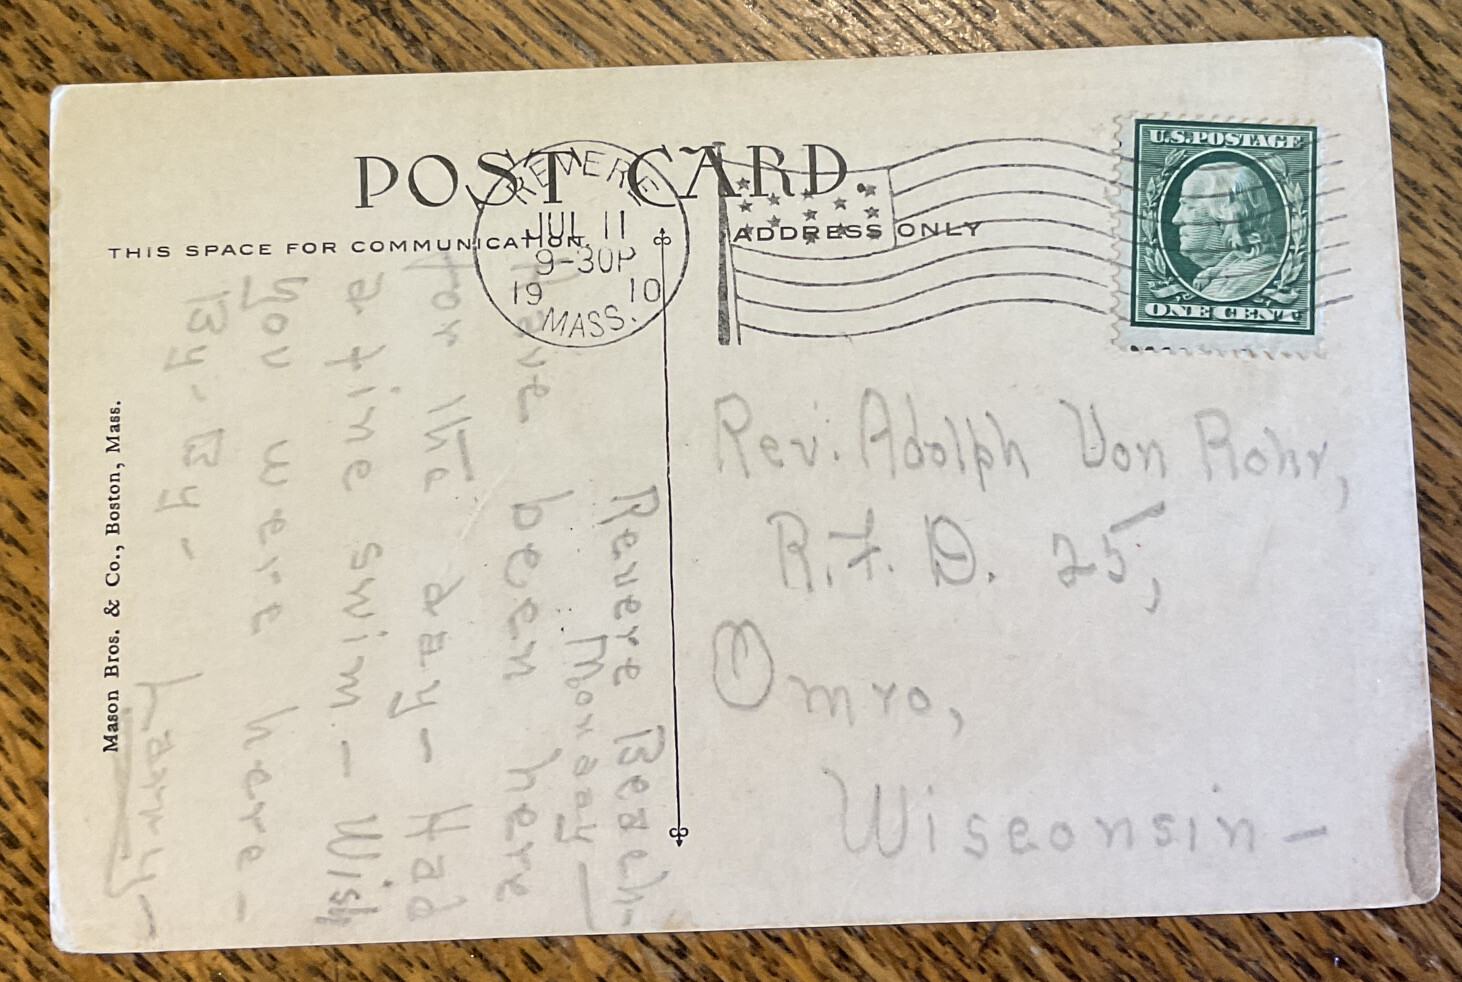 POST CARD.
THIS SPACE FOR COMMUNICATION.
ADDRESS ONLY
REVERE
JUL 11
9-30P
19 10
MASS.
U.S. POSTAGE
ONE CENT
Rev. Adolph Von Rohr,
R.F.D. 25,
Omro,
Wisconsin-
Revere Beach-
Monday-
Have been here
for the day- Had
a fine swim- Wish
you were here-
By-By-
Harry-
Mason Bros. & Co., Boston, Mass.